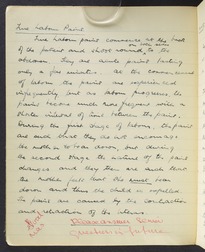 True Labour Pains
True Labour pains commence at the back
of the patient and shoot around to the
abdomen. They are acute pains lasting
only a few minutes. At the commencement
of labour the pains are experienced
infrequently but as labour progresses the
pains become much more frequent with a
shorter interval of time between the pains.
During the first stage of labour, the pains
are such that they do not encourage
the mother to bear down, but during
the second stage the nature of the pain
changes and they then are such that
the mother feels that she must bear
down and thus the child is expelled
the pains are caused by the contraction
and retraction of the uterus.